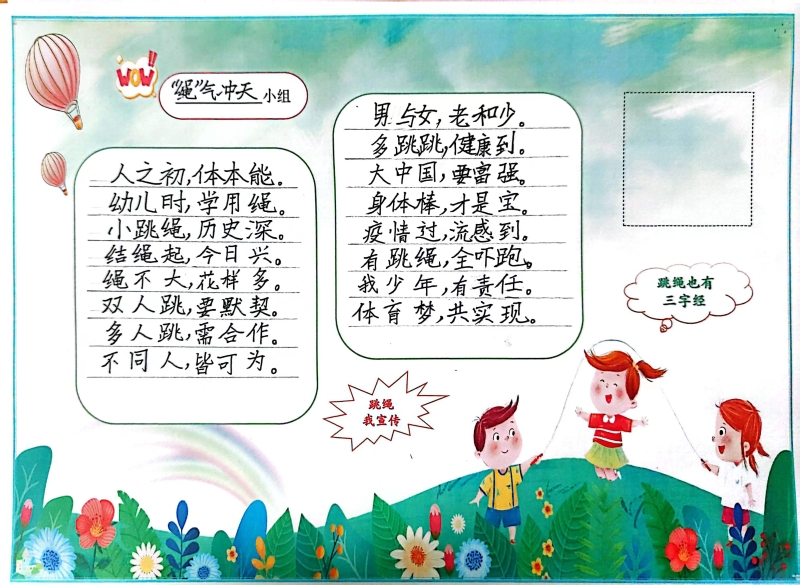 WOW!!
“绳”气冲天 小组
人之初,体本能。
幼儿时,学用绳。
小跳绳,历史深。
结绳起,今日兴。
绳不大,花样多。
双人跳,要默契。
多人跳,需合作。
不同人,皆可为。
男与女,老和少。
多跳跳,健康到。
大中国,要富强。
身体棒,才是宝。
疫情过,流感到。
有跳绳,全吓跑。
我少年,有责任。
体育梦,共实现。
跳绳也有
三字经
跳绳
我宣传